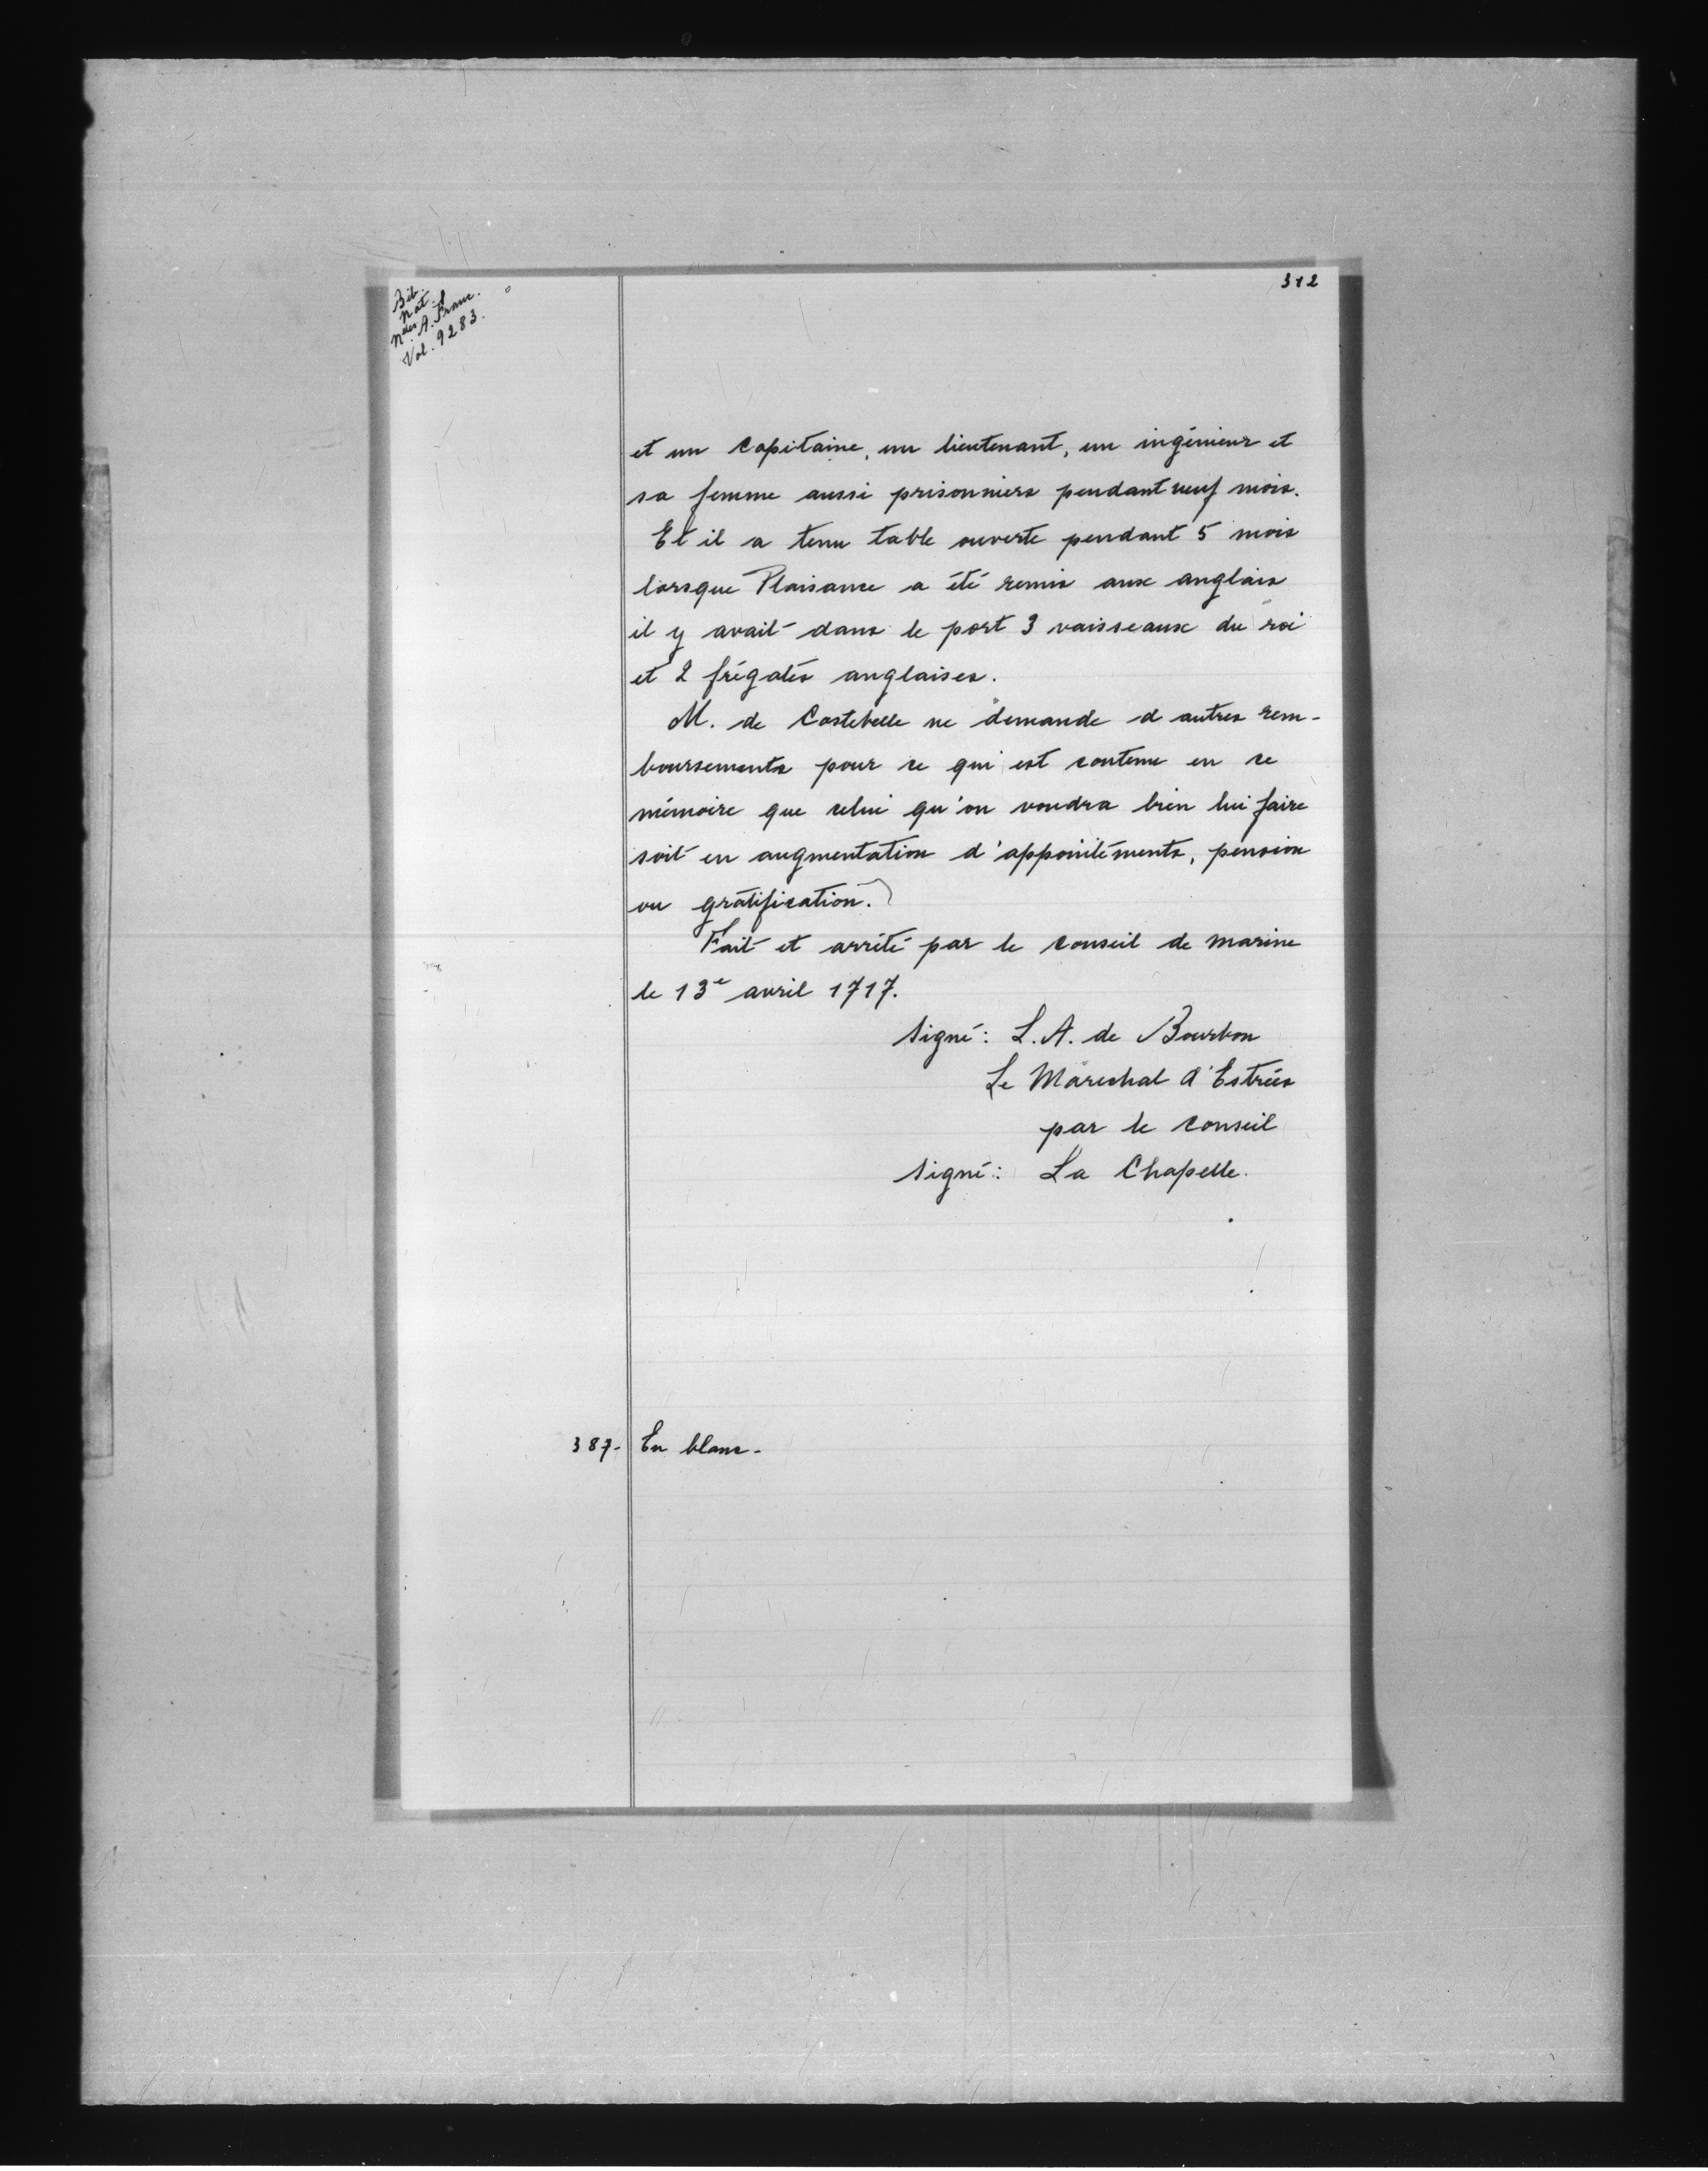 312
Bib.
Nat.
Nelles A. Franc.
Vol. 9283.
et un Capitaine, un lieutenant, un ingénieur et
sa femme aussi prisonniers pendant neuf mois.
Et il a tenu table ouverte pendant 5 mois
lorsque Plaisance a été remis aux anglais
il y avait dans le port 3 vaisseaux du roi
et 2 frégates anglaises.
M. de Costebelle ne demande d'autres rem-
boursements pour ce qui est contenu en ce
mémoire que celui qu'on voudra bien lui faire
soit en augmentation d'appointements, pension
ou gratification.
Fait et arrêté par le Conseil de Marine
le 13e avril 1717.
Signé: L. A. de Bourbon
Le Maréchal d'Estrées
par le Conseil
Signé: La Chapelle.
387- En blanc-